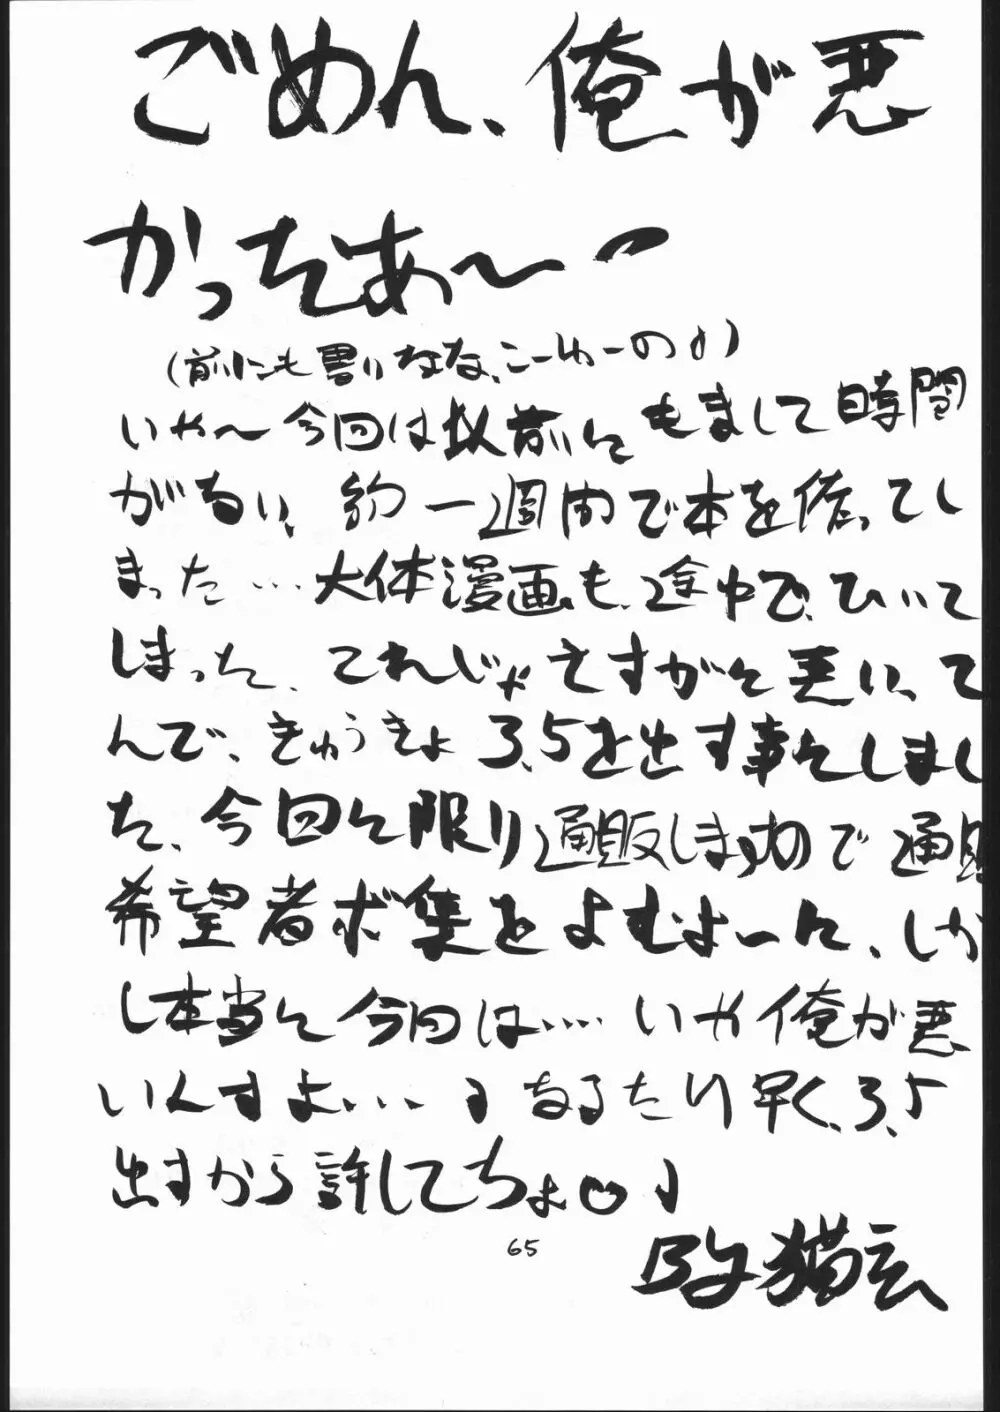 ごめん、俺が悪
かったあ〜ー
(前にも書いたな、こーゆーの♪)
いや〜今回は以前にもまして時間
がない、約一週間で本を作ってし
まった…大体漫画も、途中で、ひいて
しまった、それじゃさすがに悪い、そ
んで、きゅうきょ3.5を出す事にしまし
た、今回に限り通販しますので通販
希望者ボ集をよむよーに、しか
し本当に今回は…いや俺が悪
いんすよ…♪なるたけ早く、3.5
出すから許してちょ♡♪
65
By猫玄